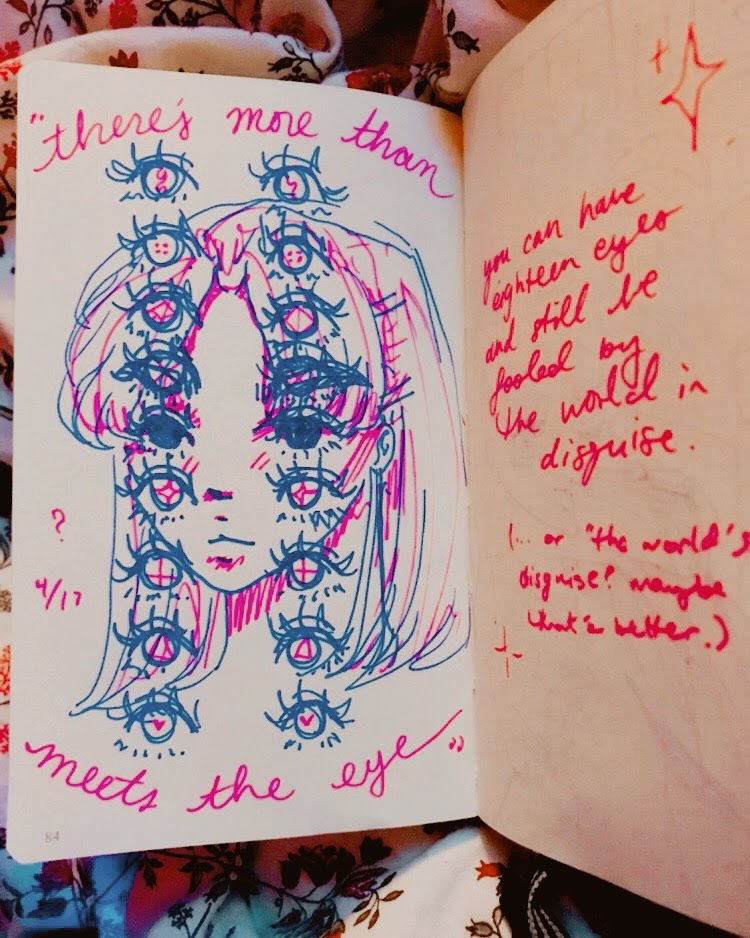 "there's more than
?
4/17
meets the eye"
84
you can have
eighteen eyes
and still be
fooled by
the world in
disguise.
(... or "the world's
disguise? maybe
that's better.)